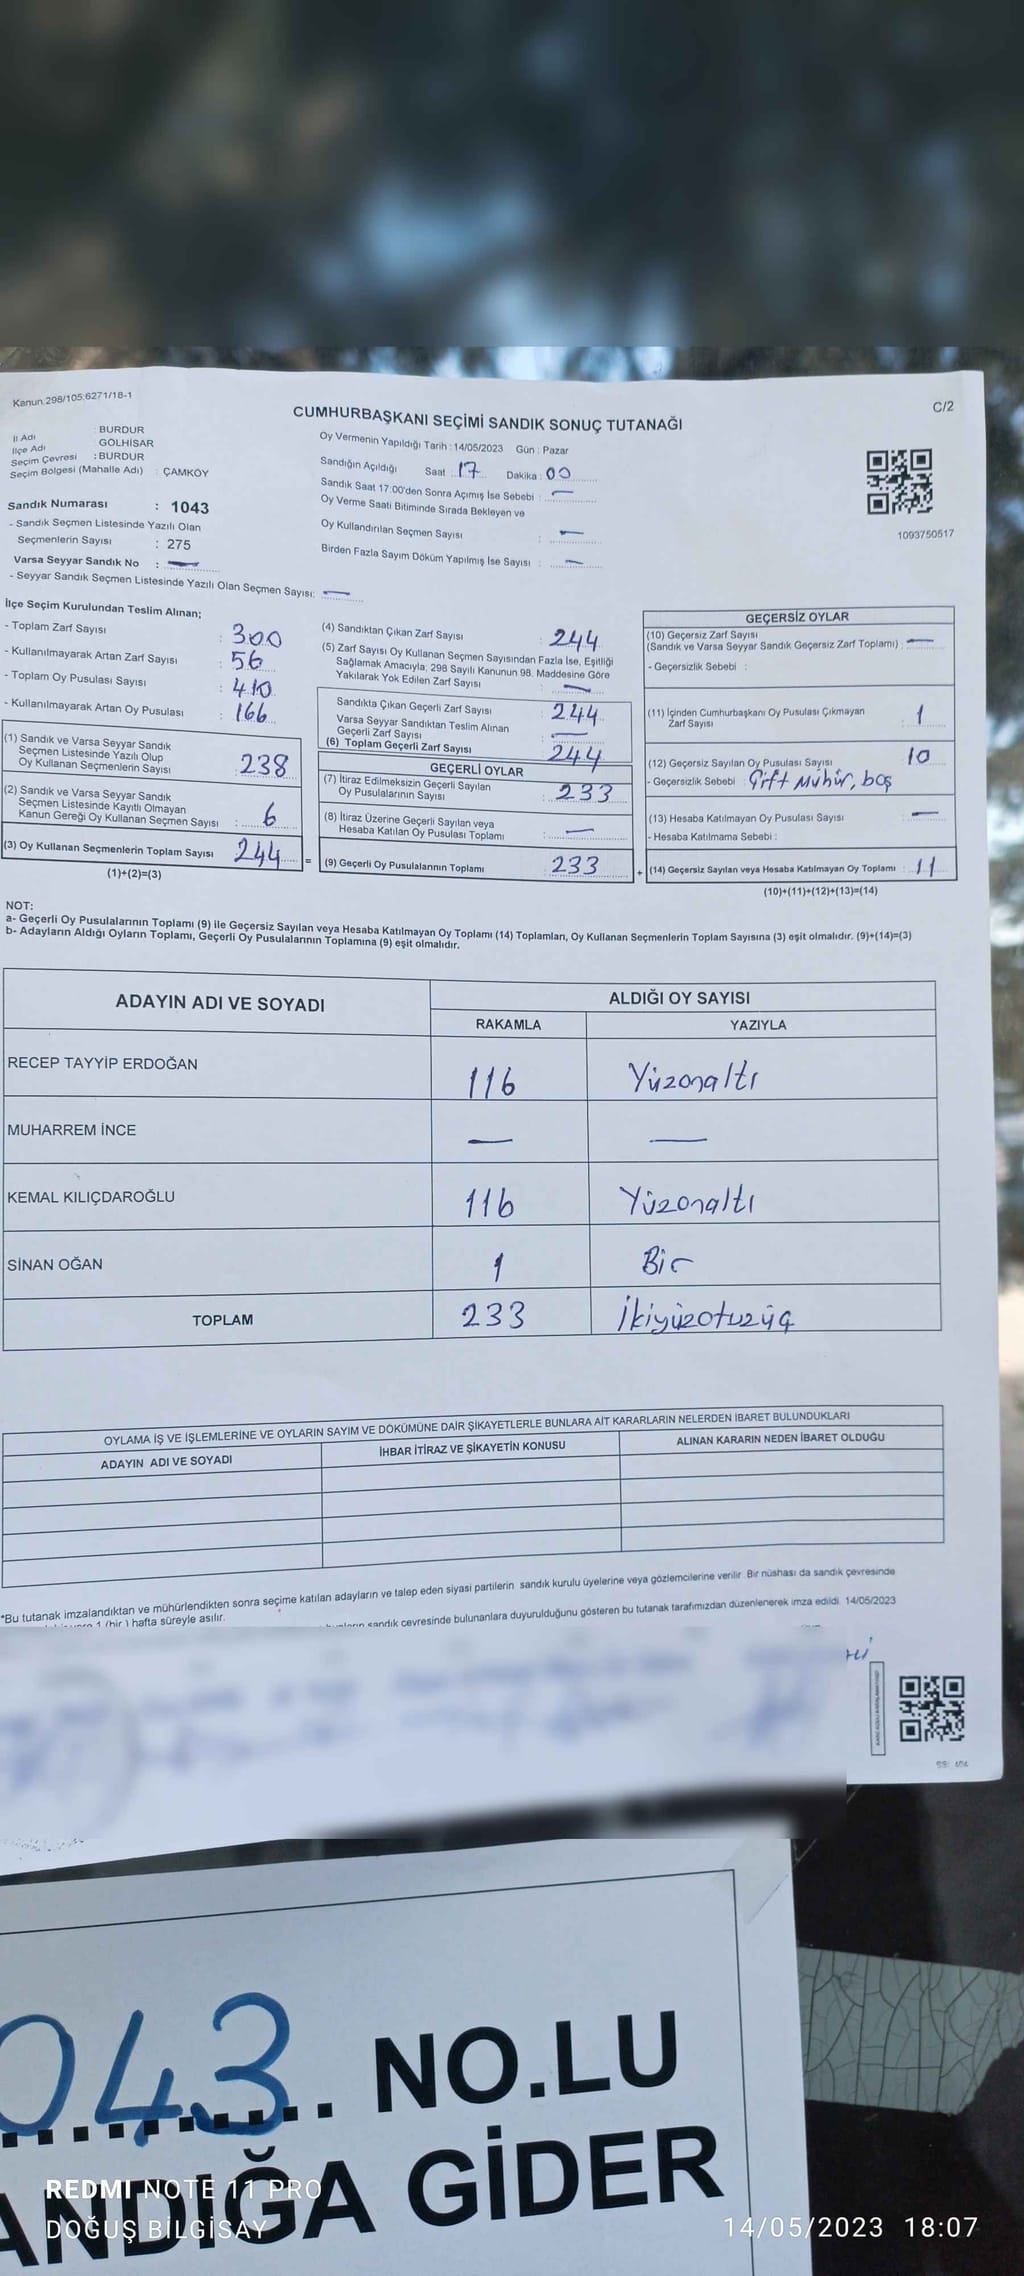 Kanun.298/105;6271/18-1
C/2
CUMHURBAŞKANI SEÇİMİ SANDIK SONUÇ TUTANAĞI
İl Adı : BURDUR
İlçe Adı : GÖLHİSAR
Seçim Çevresi : BURDUR
Seçim Bölgesi (Mahalle Adı) : ÇAMKÖY
Sandık Numarası : 1043
- Sandık Seçmen Listesinde Yazılı Olan
Seçmenlerin Sayısı : 275
Varsa Seyyar Sandık No : —
- Seyyar Sandık Seçmen Listesinde Yazılı Olan Seçmen Sayısı: —
Oy Vermenin Yapıldığı Tarih : 14/05/2023 Gün : Pazar
Sandığın Açıldığı Saat : 17 Dakika : 00
Sandık Saat 17:00'den Sonra Açımış İse Sebebi : —
Oy Verme Saati Bitiminde Sırada Bekleyen ve
Oy Kullandırılan Seçmen Sayısı : —
Birden Fazla Sayım Döküm Yapılmış İse Sayısı : —
1093750517
İlçe Seçim Kurulundan Teslim Alınan;
- Toplam Zarf Sayısı : 300
- Kullanılmayarak Artan Zarf Sayısı : 56
- Toplam Oy Pusulası Sayısı : 410
- Kullanılmayarak Artan Oy Pusulası : 166
(1) Sandık ve Varsa Seyyar Sandık
Seçmen Listesinde Yazılı Olup
Oy Kullanan Seçmenlerin Sayısı : 238
(2) Sandık ve Varsa Seyyar Sandık
Seçmen Listesinde Kayıtlı Olmayan
Kanun Gereği Oy Kullanan Seçmen Sayısı : 6
(3) Oy Kullanan Seçmenlerin Toplam Sayısı 244 =
(1)+(2)=(3)
(4) Sandıktan Çıkan Zarf Sayısı : 244
(5) Zarf Sayısı Oy Kullanan Seçmen Sayısından Fazla İse, Eşitliği
Sağlamak Amacıyla, 298 Sayılı Kanunun 98. Maddesine Göre
Yakılarak Yok Edilen Zarf Sayısı : —
Sandıkta Çıkan Geçerli Zarf Sayısı : 244
Varsa Seyyar Sandıktan Teslim Alınan
Geçerli Zarf Sayısı : —
(6) Toplam Geçerli Zarf Sayısı 244
GEÇERLİ OYLAR
(7) İtiraz Edilmeksizin Geçerli Sayılan
Oy Pusulalarının Sayısı : 233
(8) İtiraz Üzerine Geçerli Sayılan veya
Hesaba Katılan Oy Pusulası Toplamı : —
(9) Geçerli Oy Pusulalarının Toplamı 233 +
GEÇERSİZ OYLAR
(10) Geçersiz Zarf Sayısı
(Sandık ve Varsa Seyyar Sandık Geçersiz Zarf Toplamı) : —
- Geçersizlik Sebebi :
(11) İçinden Cumhurbaşkanı Oy Pusulası Çıkmayan
Zarf Sayısı : 1
(12) Geçersiz Sayılan Oy Pusulası Sayısı 10
- Geçersizlik Sebebi : Çift Mühür, boş
(13) Hesaba Katılmayan Oy Pusulası Sayısı : —
- Hesaba Katılmama Sebebi :
(14) Geçersiz Sayılan veya Hesaba Katılmayan Oy Toplamı : 11
(10)+(11)+(12)+(13)=(14)
NOT:
a- Geçerli Oy Pusulalarının Toplamı (9) ile Geçersiz Sayılan veya Hesaba Katılmayan Oy Toplamı (14) Toplamları, Oy Kullanan Seçmenlerin Toplam Sayısına (3) eşit olmalıdır. (9)+(14)=(3)
b- Adayların Aldığı Oyların Toplamı, Geçerli Oy Pusulalarının Toplamına (9) eşit olmalıdır.
ADAYIN ADI VE SOYADI
ALDIĞI OY SAYISI
RAKAMLA YAZIYLA
RECEP TAYYİP ERDOĞAN 116 Yüzonaltı
MUHARREM İNCE — —
KEMAL KILIÇDAROĞLU 116 Yüzonaltı
SİNAN OĞAN 1 Bir
TOPLAM 233 İkiyüzotuzüç
OYLAMA İŞ VE İŞLEMLERİNE VE OYLARIN SAYIM VE DÖKÜMÜNE DAİR ŞİKAYETLERLE BUNLARA AİT KARARLARIN NELERDEN İBARET BULUNDUKLARI
ADAYIN ADI VE SOYADI İHBAR İTİRAZ VE ŞİKAYETİN KONUSU ALINAN KARARIN NEDEN İBARET OLDUĞU
*Bu tutanak imzalandıktan ve mühürlendikten sonra seçime katılan adayların ve talep eden siyasi partilerin sandık kurulu üyelerine veya gözlemcilerine verilir. Bir nüshası da sandık çevresinde
1 (bir) hafta süreyle asılır.
sandık çevresinde bulunanlara duyurulduğunu gösteren bu tutanak tarafımızdan düzenlenerek imza edildi. 14/05/2023
043 NO.LU
ANDIĞA GİDER
REDMI NOTE 11 PRO
DOĞUŞ BİLGİSAY
14/05/2023 18:07